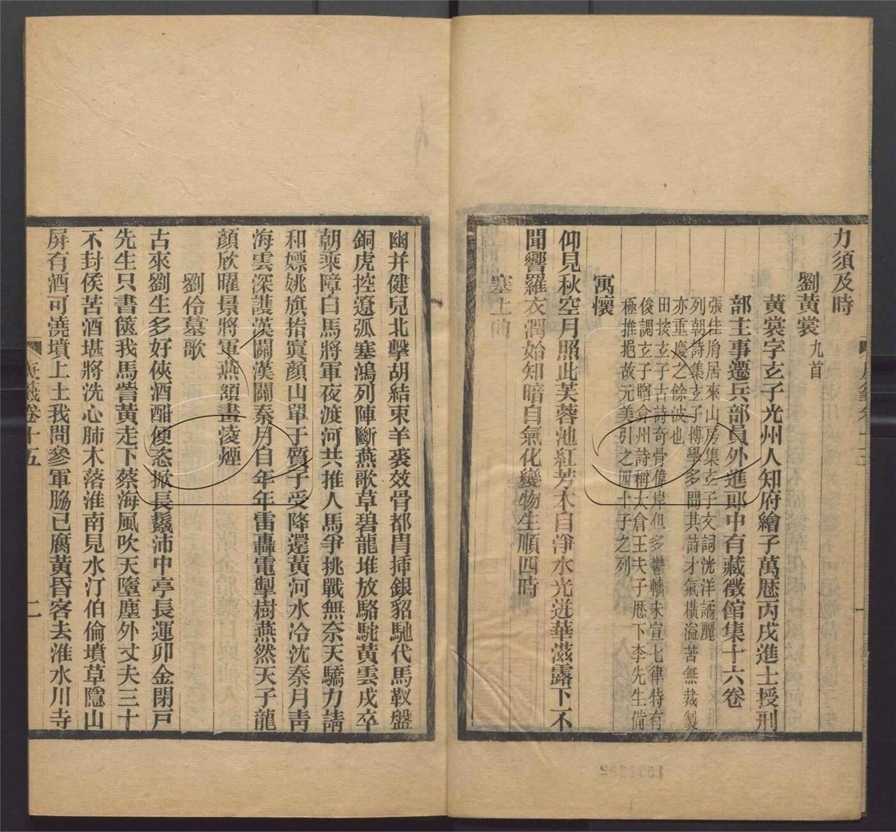 力須及時
劉黃裳九首
黃裳字玄子光州人知府繪子萬曆丙戌進士授刑
部主事遷兵部員外進郎中有藏徵館集十六卷
張佳胤居來山房集玄子文詞洸洋譎麗
列朝詩集玄子博學多聞其詩才氣橫溢苦無裁製
亦重慶之餘波也
田按玄子古詩奇骨偉岸但多轇轕未宣七律特有
俊調玄子贈弇州詩稱太倉王夫子歷下李先生備
極推挹故元美引之四十子之列
寓懷
仰見秋空月照此芙蓉池紅芳本自淨水光迸華滋露下不
聞響羅衣潤始知暗自氣化變物生順四時
塞上曲
幽并健兒北擊胡結束羊裘效骨都冑揷銀貂馳代馬靫盤
銅虎控遼弧塞鴻列陣斷燕歌草碧龍堆放駱駝黃雲戍卒
朝乘障白馬將軍夜渡河共推人馬爭挑戰無奈天驕力請
和嫖姚旗指寘顏山單于質子受降還黃河水冷沈秦月靑
海雲深護漢關漢關秦月自年年雷轟電掣樹燕然天子龍
顏欣曜景將軍燕頷畫凌煙
劉伶墓歌
古來劉生多好俠酒酣便恣掀長鬣沛中亭長運卯金閉戶
先生只書篋我馬營黃走下蔡海風吹天墮塵外丈夫三十
不封侯苦酒堪將洗心肺木落淮南見水汀伯倫墳草隱山
屏有酒可澆墳上土我問參軍脇已腐黃昏客去淮水川寺
庚籤卷十五
二